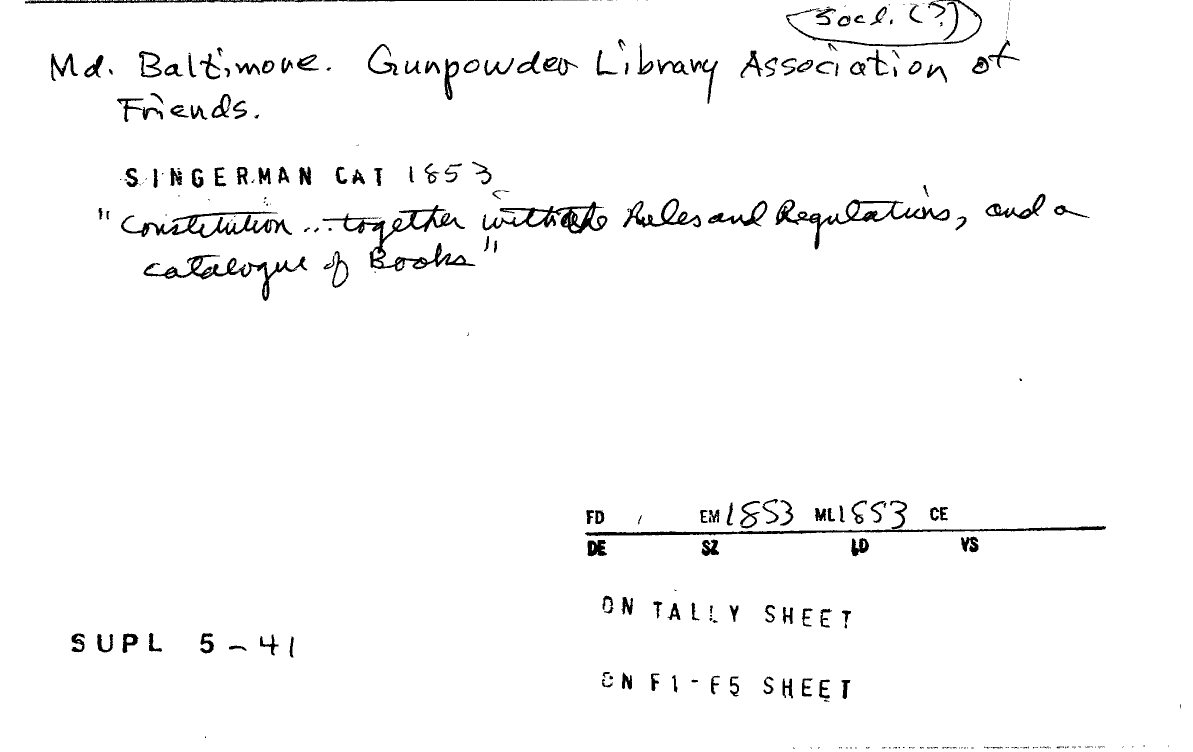 Socl. (?)
Md. Baltimore. Gunpowder Library Association of
Friends.
SINGERMAN CAT 1853
"Constitution ... together with the Rules and Regulations, and a
catalogue of Books"
FD EM 1853 ML 1853 CE
DE SZ LD VS
ON TALLY SHEET
SUPL 5-41
ON F1-F5 SHEET